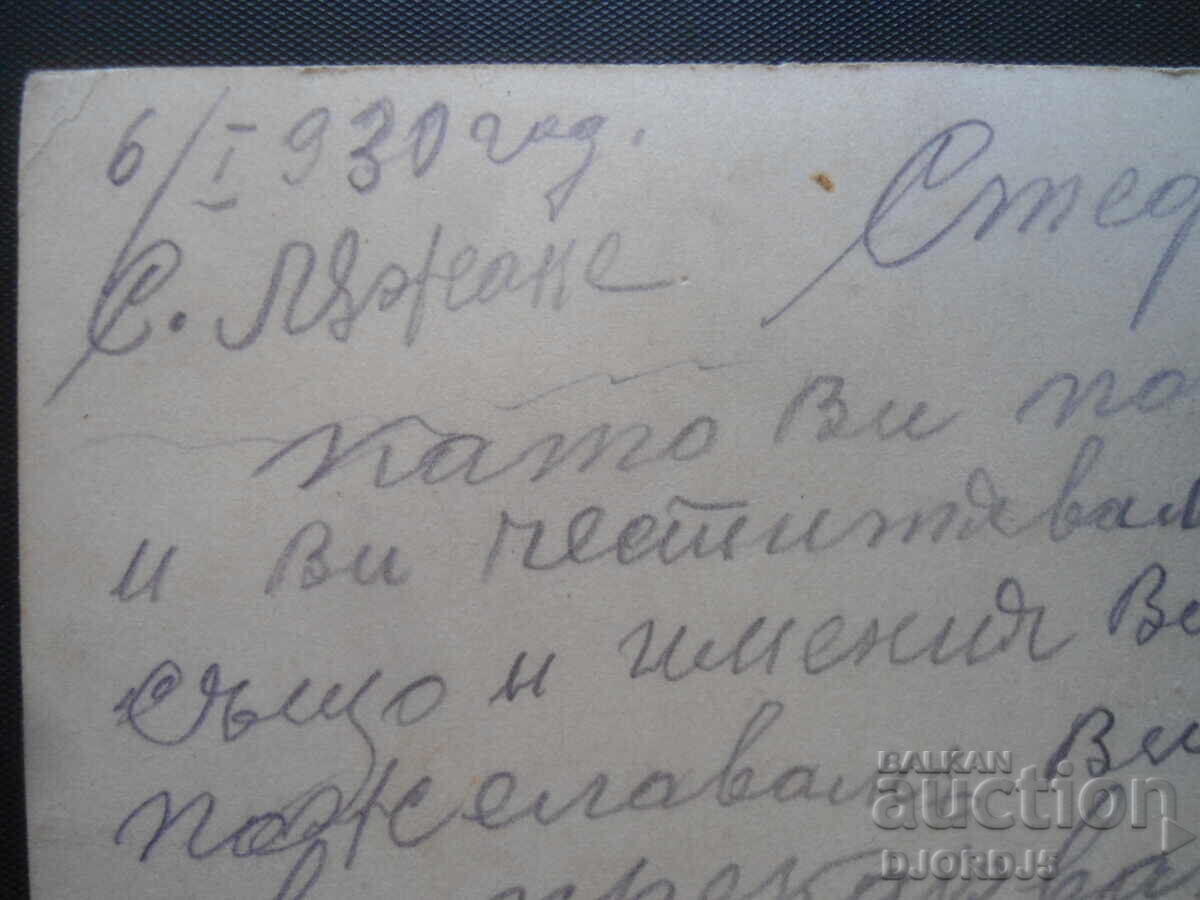 6/I 930 год.
с. Лъжане
Стеф
Като Ви по
и Ви честитявам
също и имения Ве
пожелавам Ви
BALKAN
auction
DJORDJ5